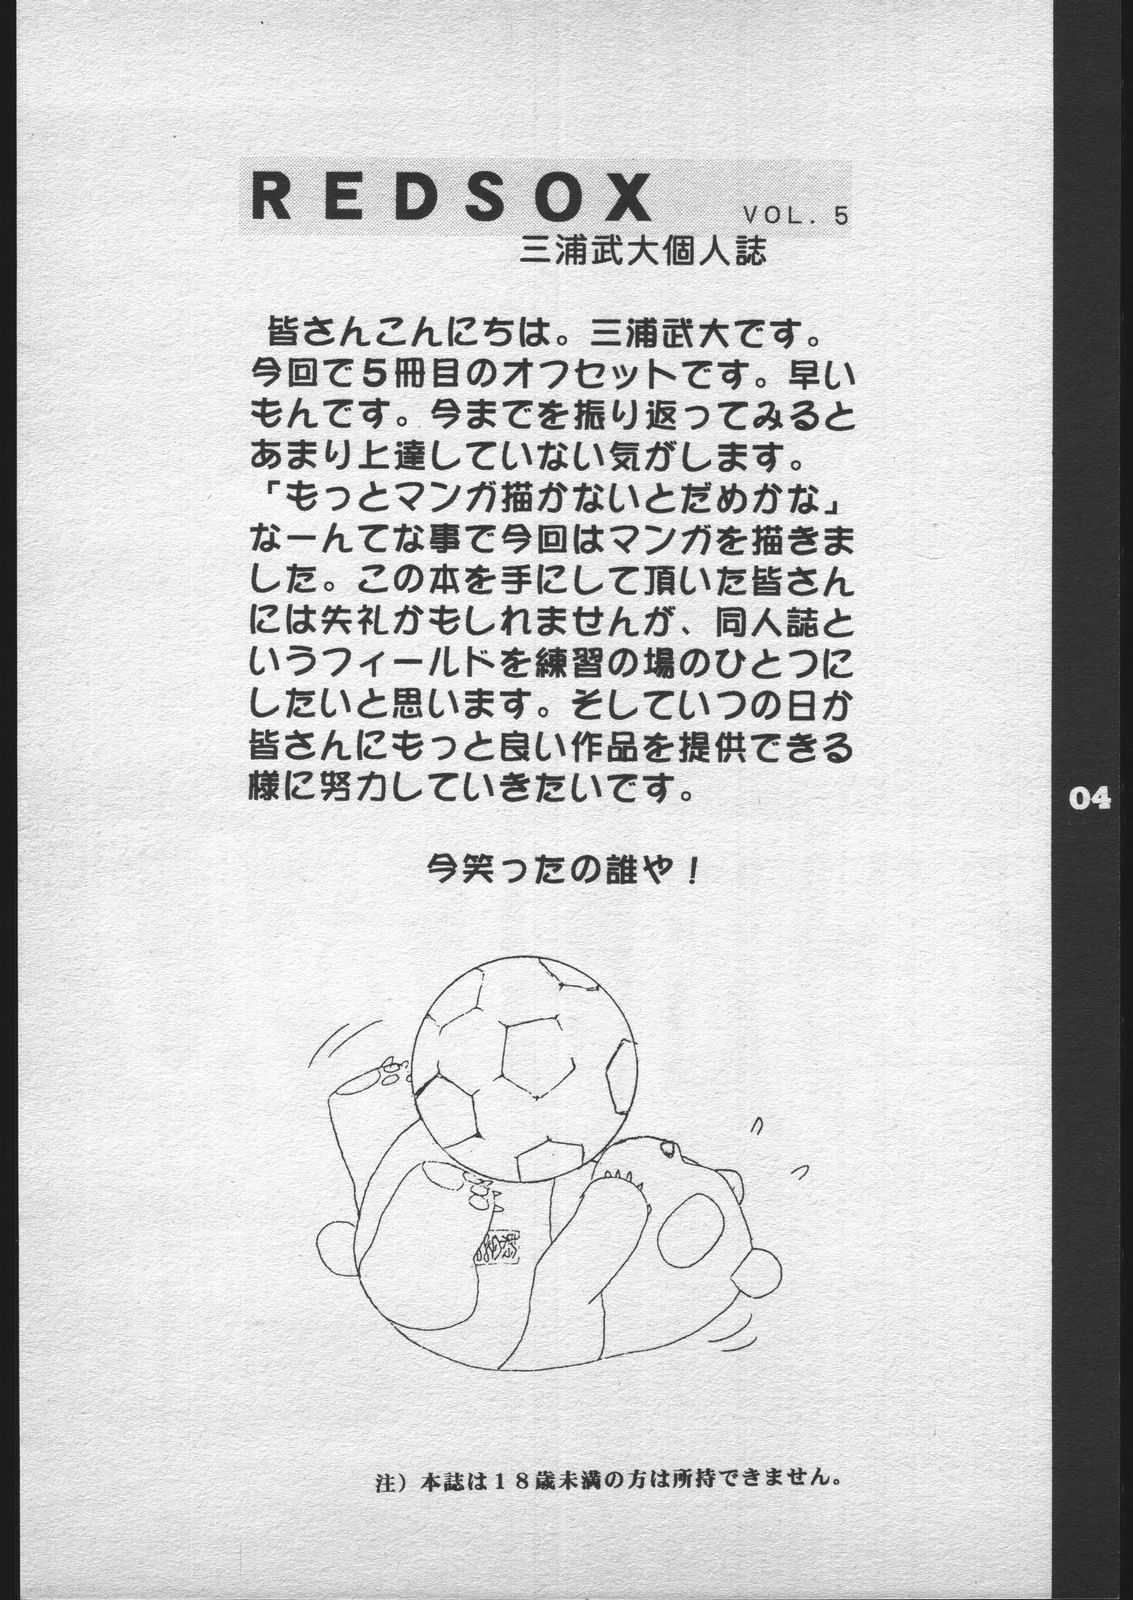 REDSOX VOL. 5
三浦武大個人誌
皆さんこんにちは。三浦武大です。
今回で5冊目のオフセットです。早い
もんです。今までを振り返ってみると
あまり上達していない気がします。
「もっとマンガ描かないとだめかな」
なーんてな事で今回はマンガを描きま
した。この本を手にして頂いた皆さん
には失礼かもしれませんが、同人誌と
いうフィールドを練習の場のひとつに
したいと思います。そしていつの日か
皆さんにもっと良い作品を提供できる
様に努力していきたいです。
今笑ったの誰や！
04
注）本誌は18歳未満の方は所持できません。